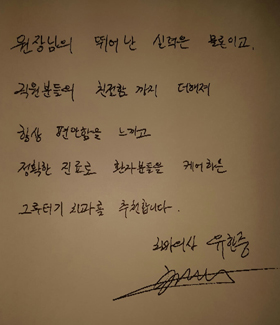 원장님의 뛰어난 실력은 물론이고,
직원분들의 친절함까지 더해져
항상 편안함을 느끼고
정확한 진료로 환자분들을 케어하는
그루터기 치과를 추천합니다.
유현중